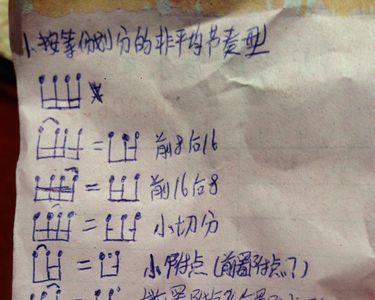 1、按等份划分的非平均节奏型
= 前8后16
= 前16后8
= 小切分
= 小附点(前置附点了)
=